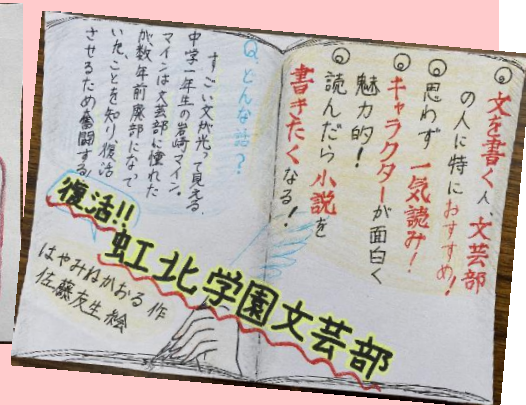 ◎文を書く人、文芸部
の人に特におすすめ!
◎思わず一気読み!
◎キャラクターが面白く
魅力的!
◎読んだら小説を
書きたくなる!
Q.どんな話?
すごい文が光って見える、
中学一年生の岩崎マイン。
マインは文芸部に憧れた
が数年前廃部になって
いたことを知り復活
させるため奮闘する!
復活!!
虹北学園文芸部
はやみねかおる 作
佐藤友生 絵